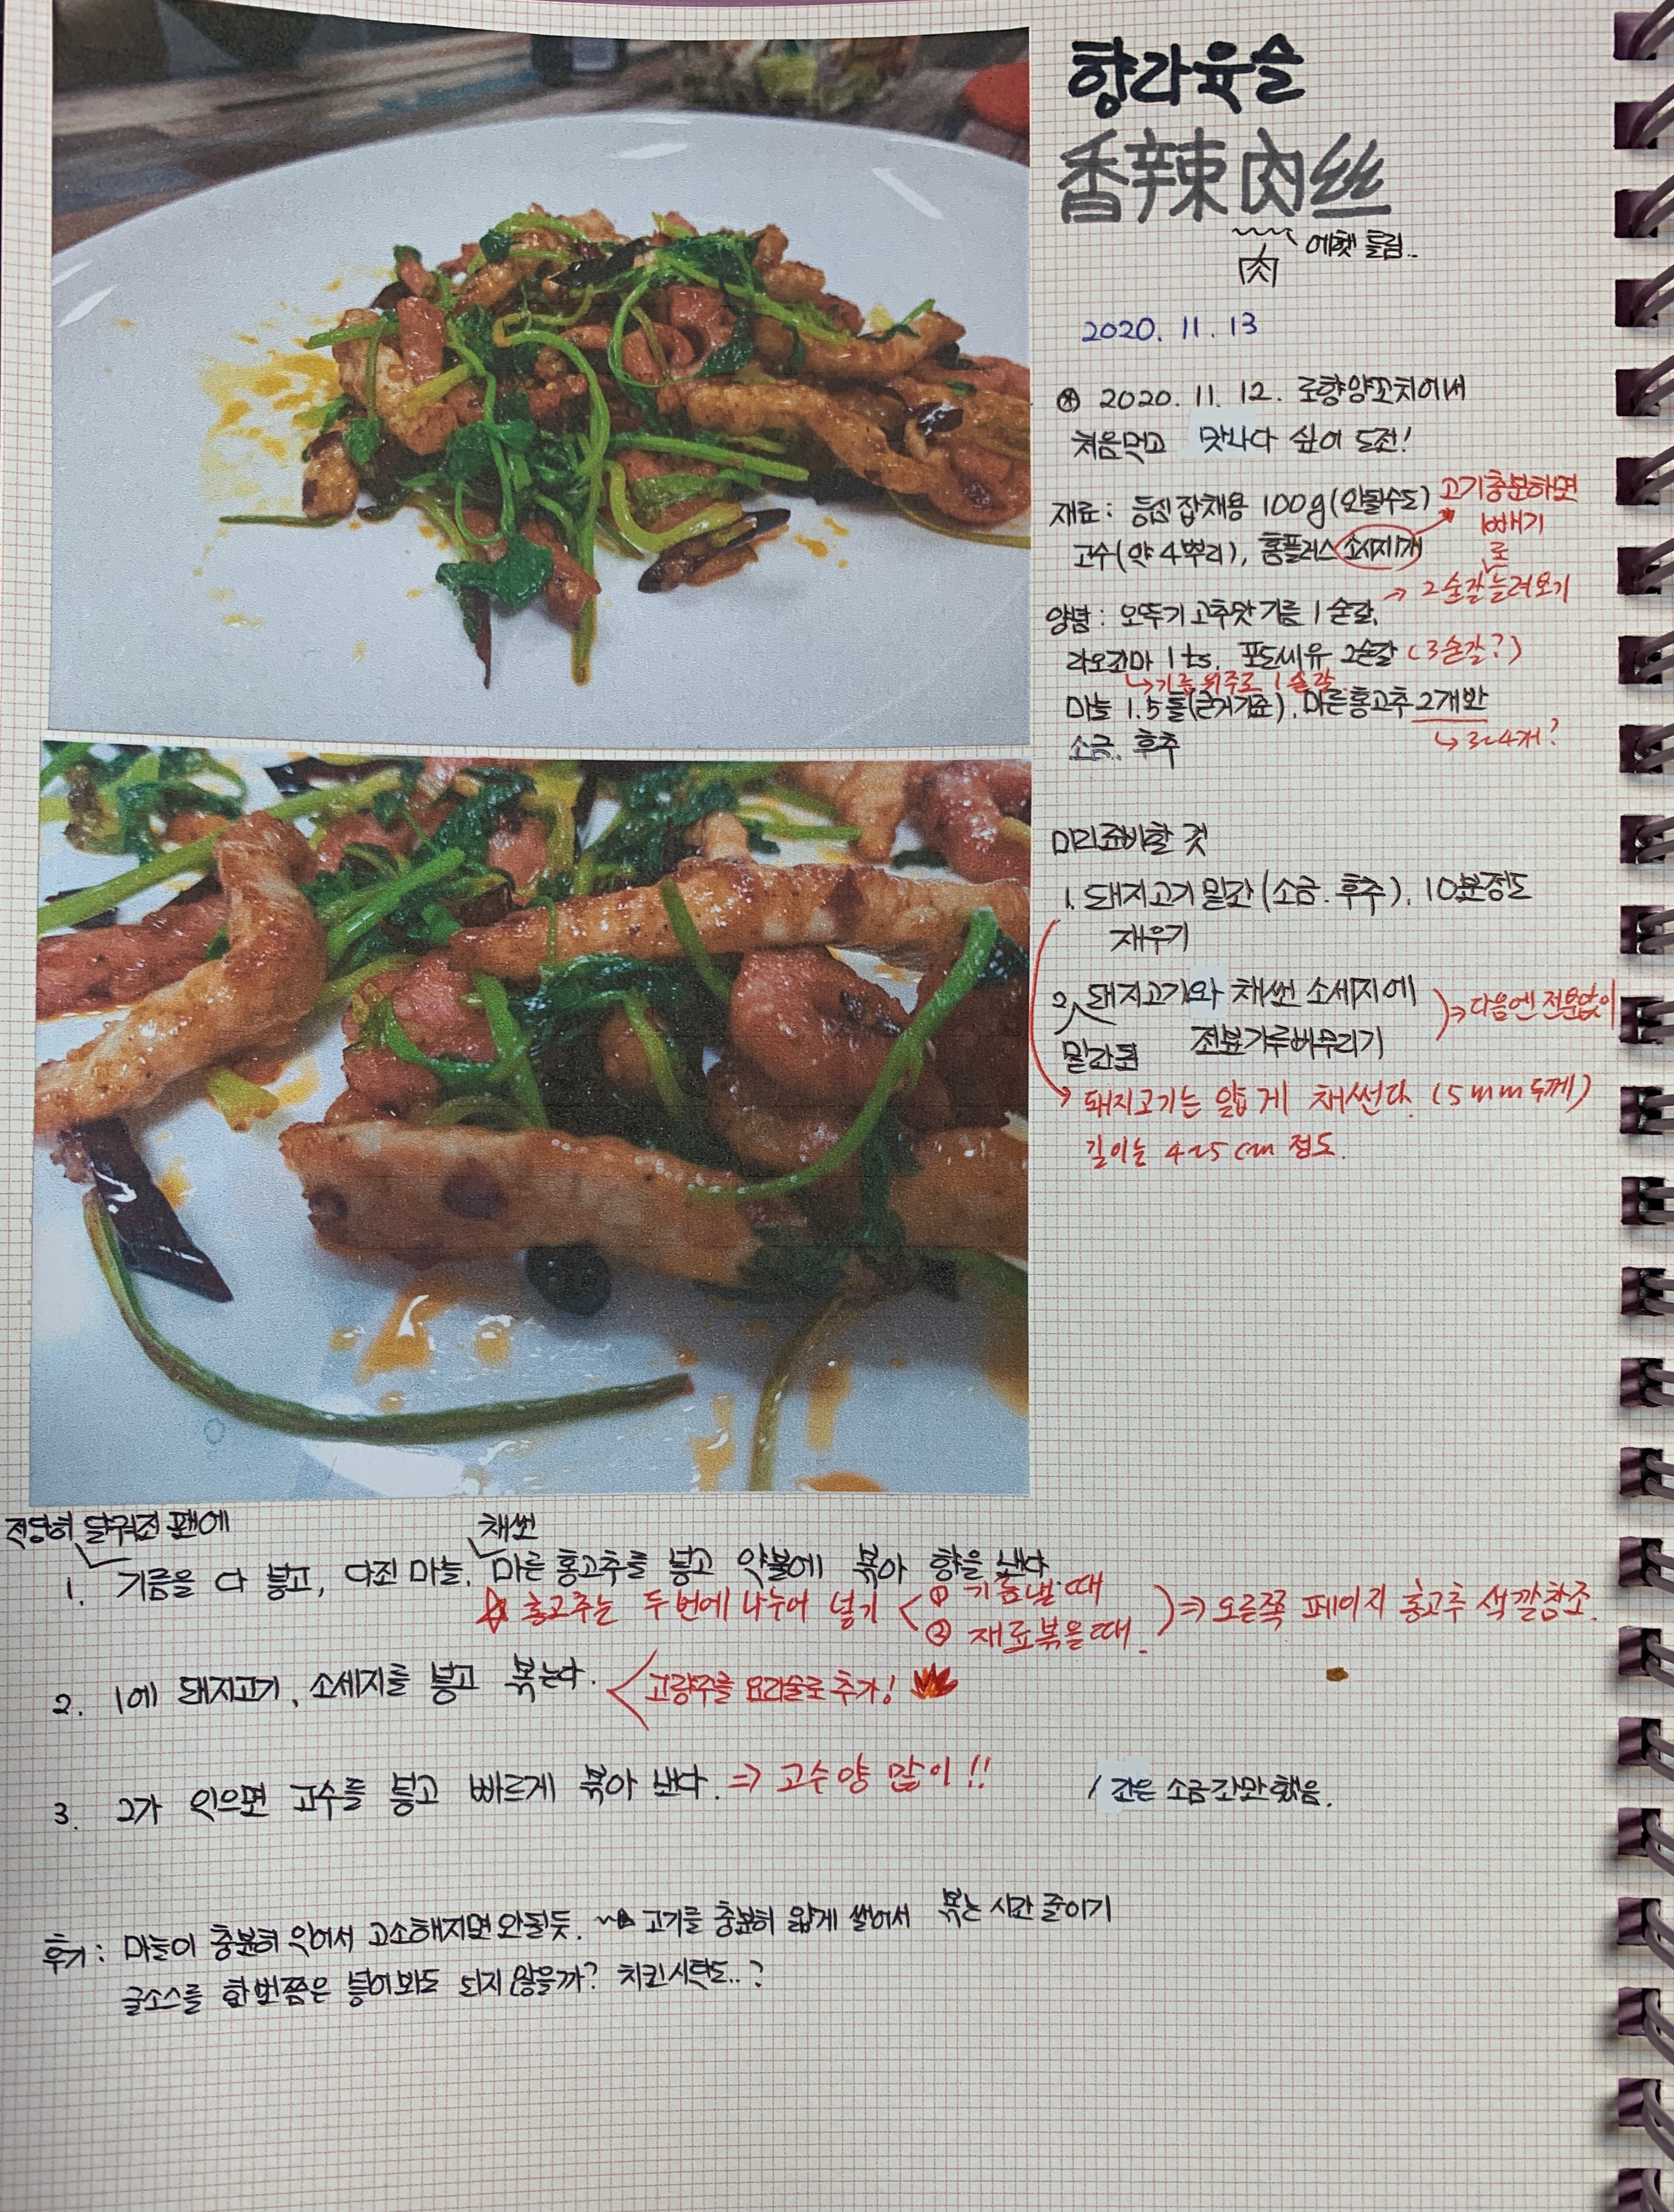 향라육슬
香辣肉丝
肉 에헷 틀림..
2020. 11. 13
※ 2020. 11. 12. 로향양꼬치에서
처음먹고 맛나다 싶어 도전!
재료: 등심 잡채용 100g (안될수도)
고수(약 4뿌리), 홈플러스 소세지1개
고기충분하면
빼기
로
→ 2숟갈 늘려보기
양념: 오뚜기 고추맛기름 1숟갈,
라오깐마 1ts. 포도씨유 2숟갈 (3숟갈?)
↳기름위주로 1숟갈
마늘 1.5톨(굵거기준). 마른홍고추 2개반
↳ 3~4개?
소금. 후추
미리준비할 것
1. 돼지고기 밑간 (소금. 후추). 10분정도
재우기
2. 돼지고기와 채썬 소세지에
밑간된 전분가루버무리기
⇒ 다음엔 전분없이
→ 돼지고기는 얇게 채썬다. (5mm두께)
길이는 4~5cm 정도.
적당히 달궈진 팬에 채썬
1. 기름을 다 붛고, 다진 마늘. 마른 홍고추를 넣고 약불에 볶아 향을 낸다
☆ 홍고추는 두번에 나누어 넣기 < ① 기름낼 때
② 재료볶을때. ) ⇒ 오른쪽 페이지 홍고추 색깔참조.
2. 1에 돼지고기, 소세지를 넣고 볶는다. < 고량주를 요리술로 추가!
3. 2가 익으면 고수를 넣고 빠르게 볶아 낸다. ⇒ 고수양 많이!!
/ 간은 소금간만 했음.
후기: 마늘이 충분히 익어서 고소해지면 안될듯. ~▶ 고기를 충분히 얇게 썰어서 볶는 시간 줄이기
굴소스를 한번쯤은 넣어봐도 되지 않을까? 치킨시탁도..?